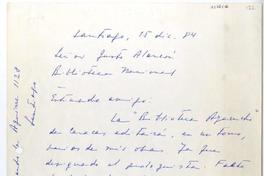 Santiago, 15 dic. 84
Señor Justo Alarcón
Biblioteca Nacional
Estimado amigo:
La "Biblioteca Ayacucho"
de Caracas editará, en un tomo,
varias de mis obras. Ya fue
designado el prologuista. Falta
Aguirre 1128
Santiago